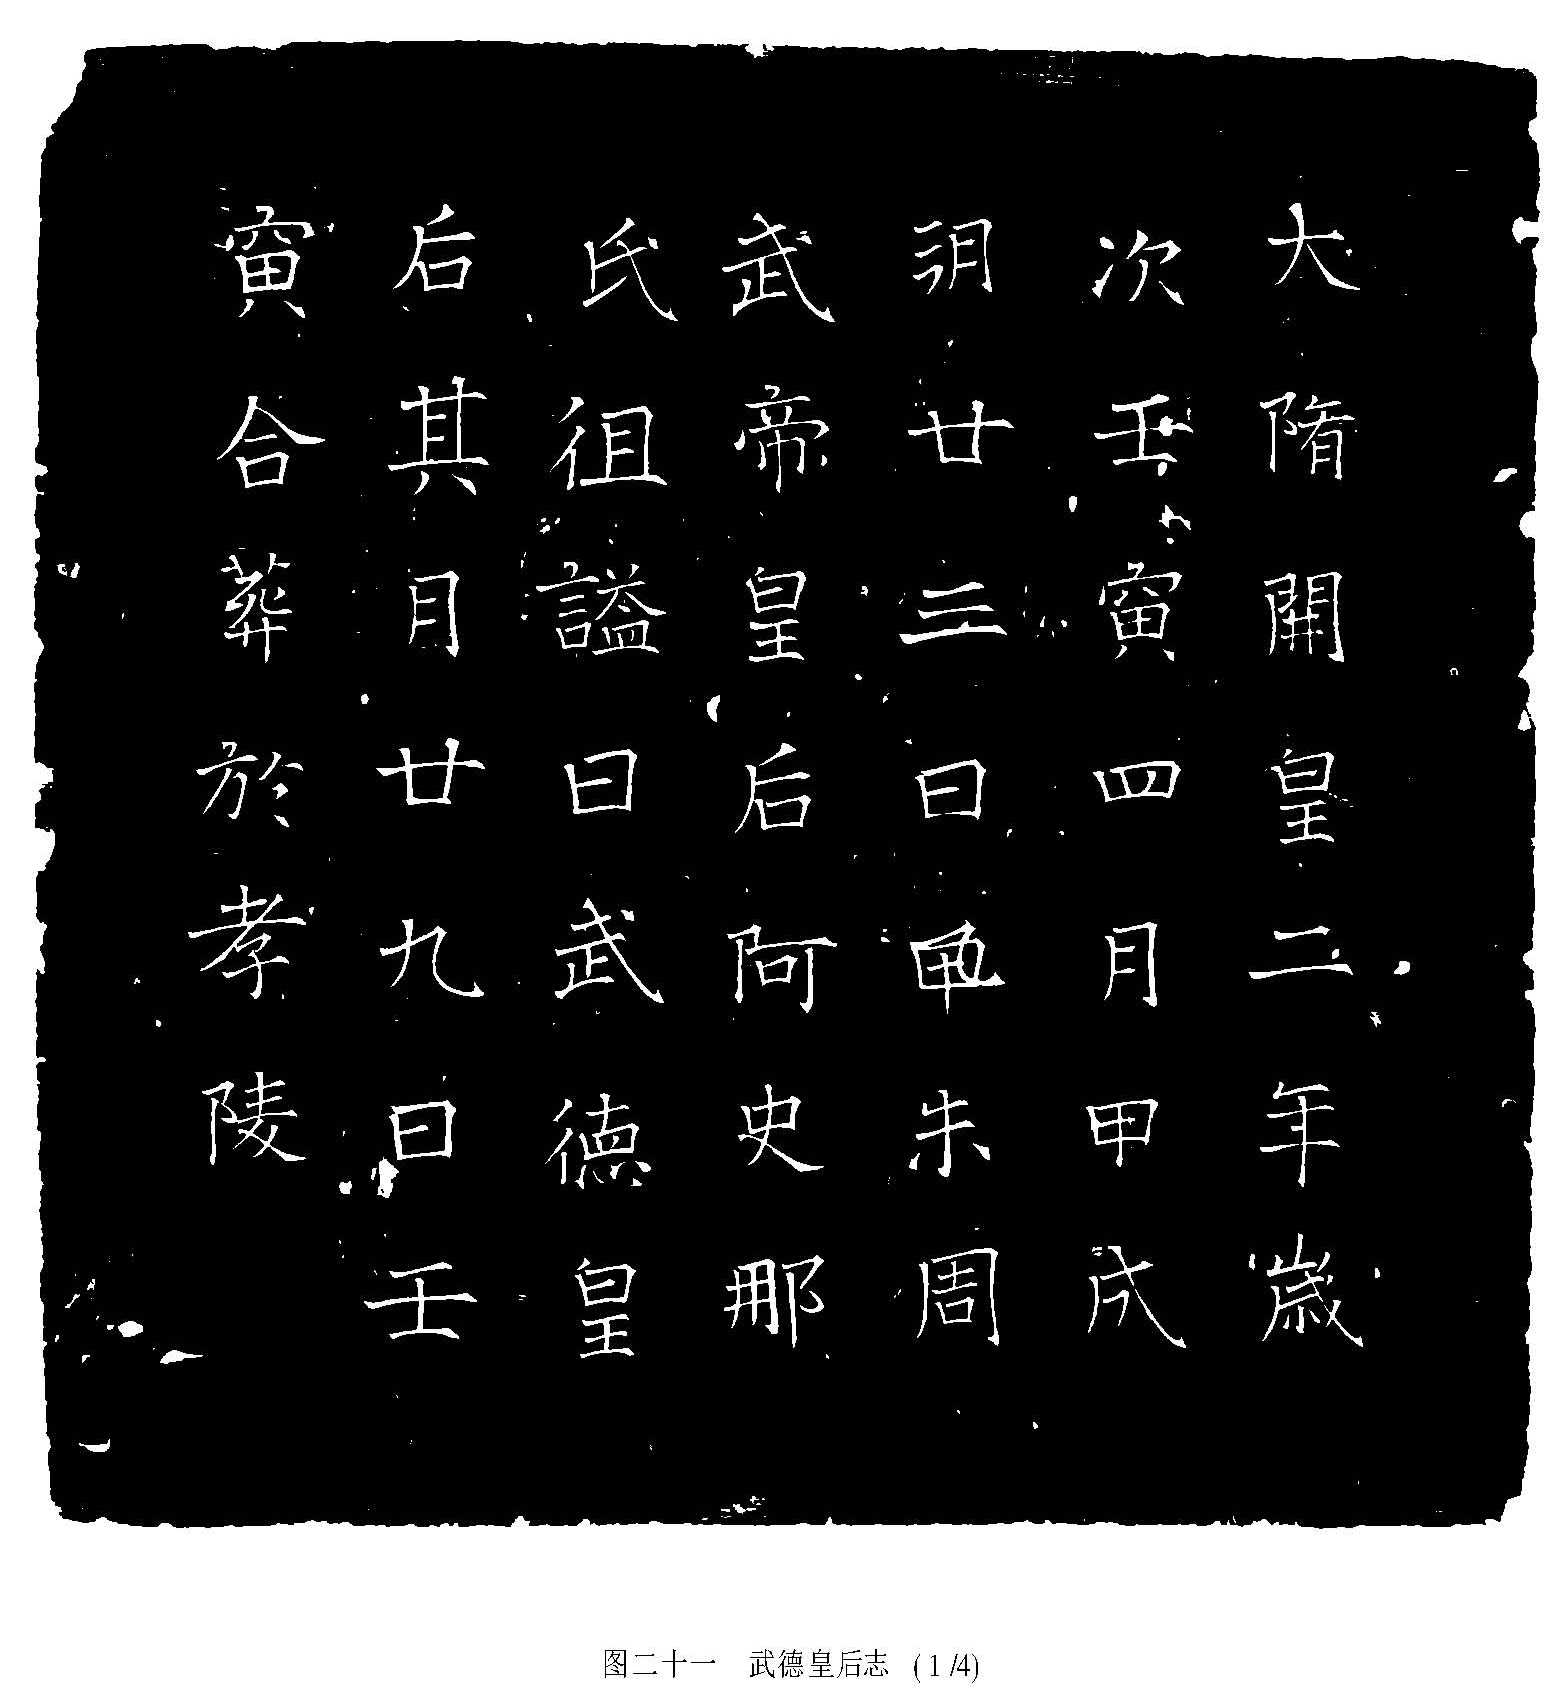 大隋開皇二年歳
次壬寅四月甲戌
朔廿三日甲朱周
武帝皇后阿史那
氏徂諡曰武德皇
后其月廿九日壬
寅合葬於孝陵
图二十一 武德皇后志 (1/4)